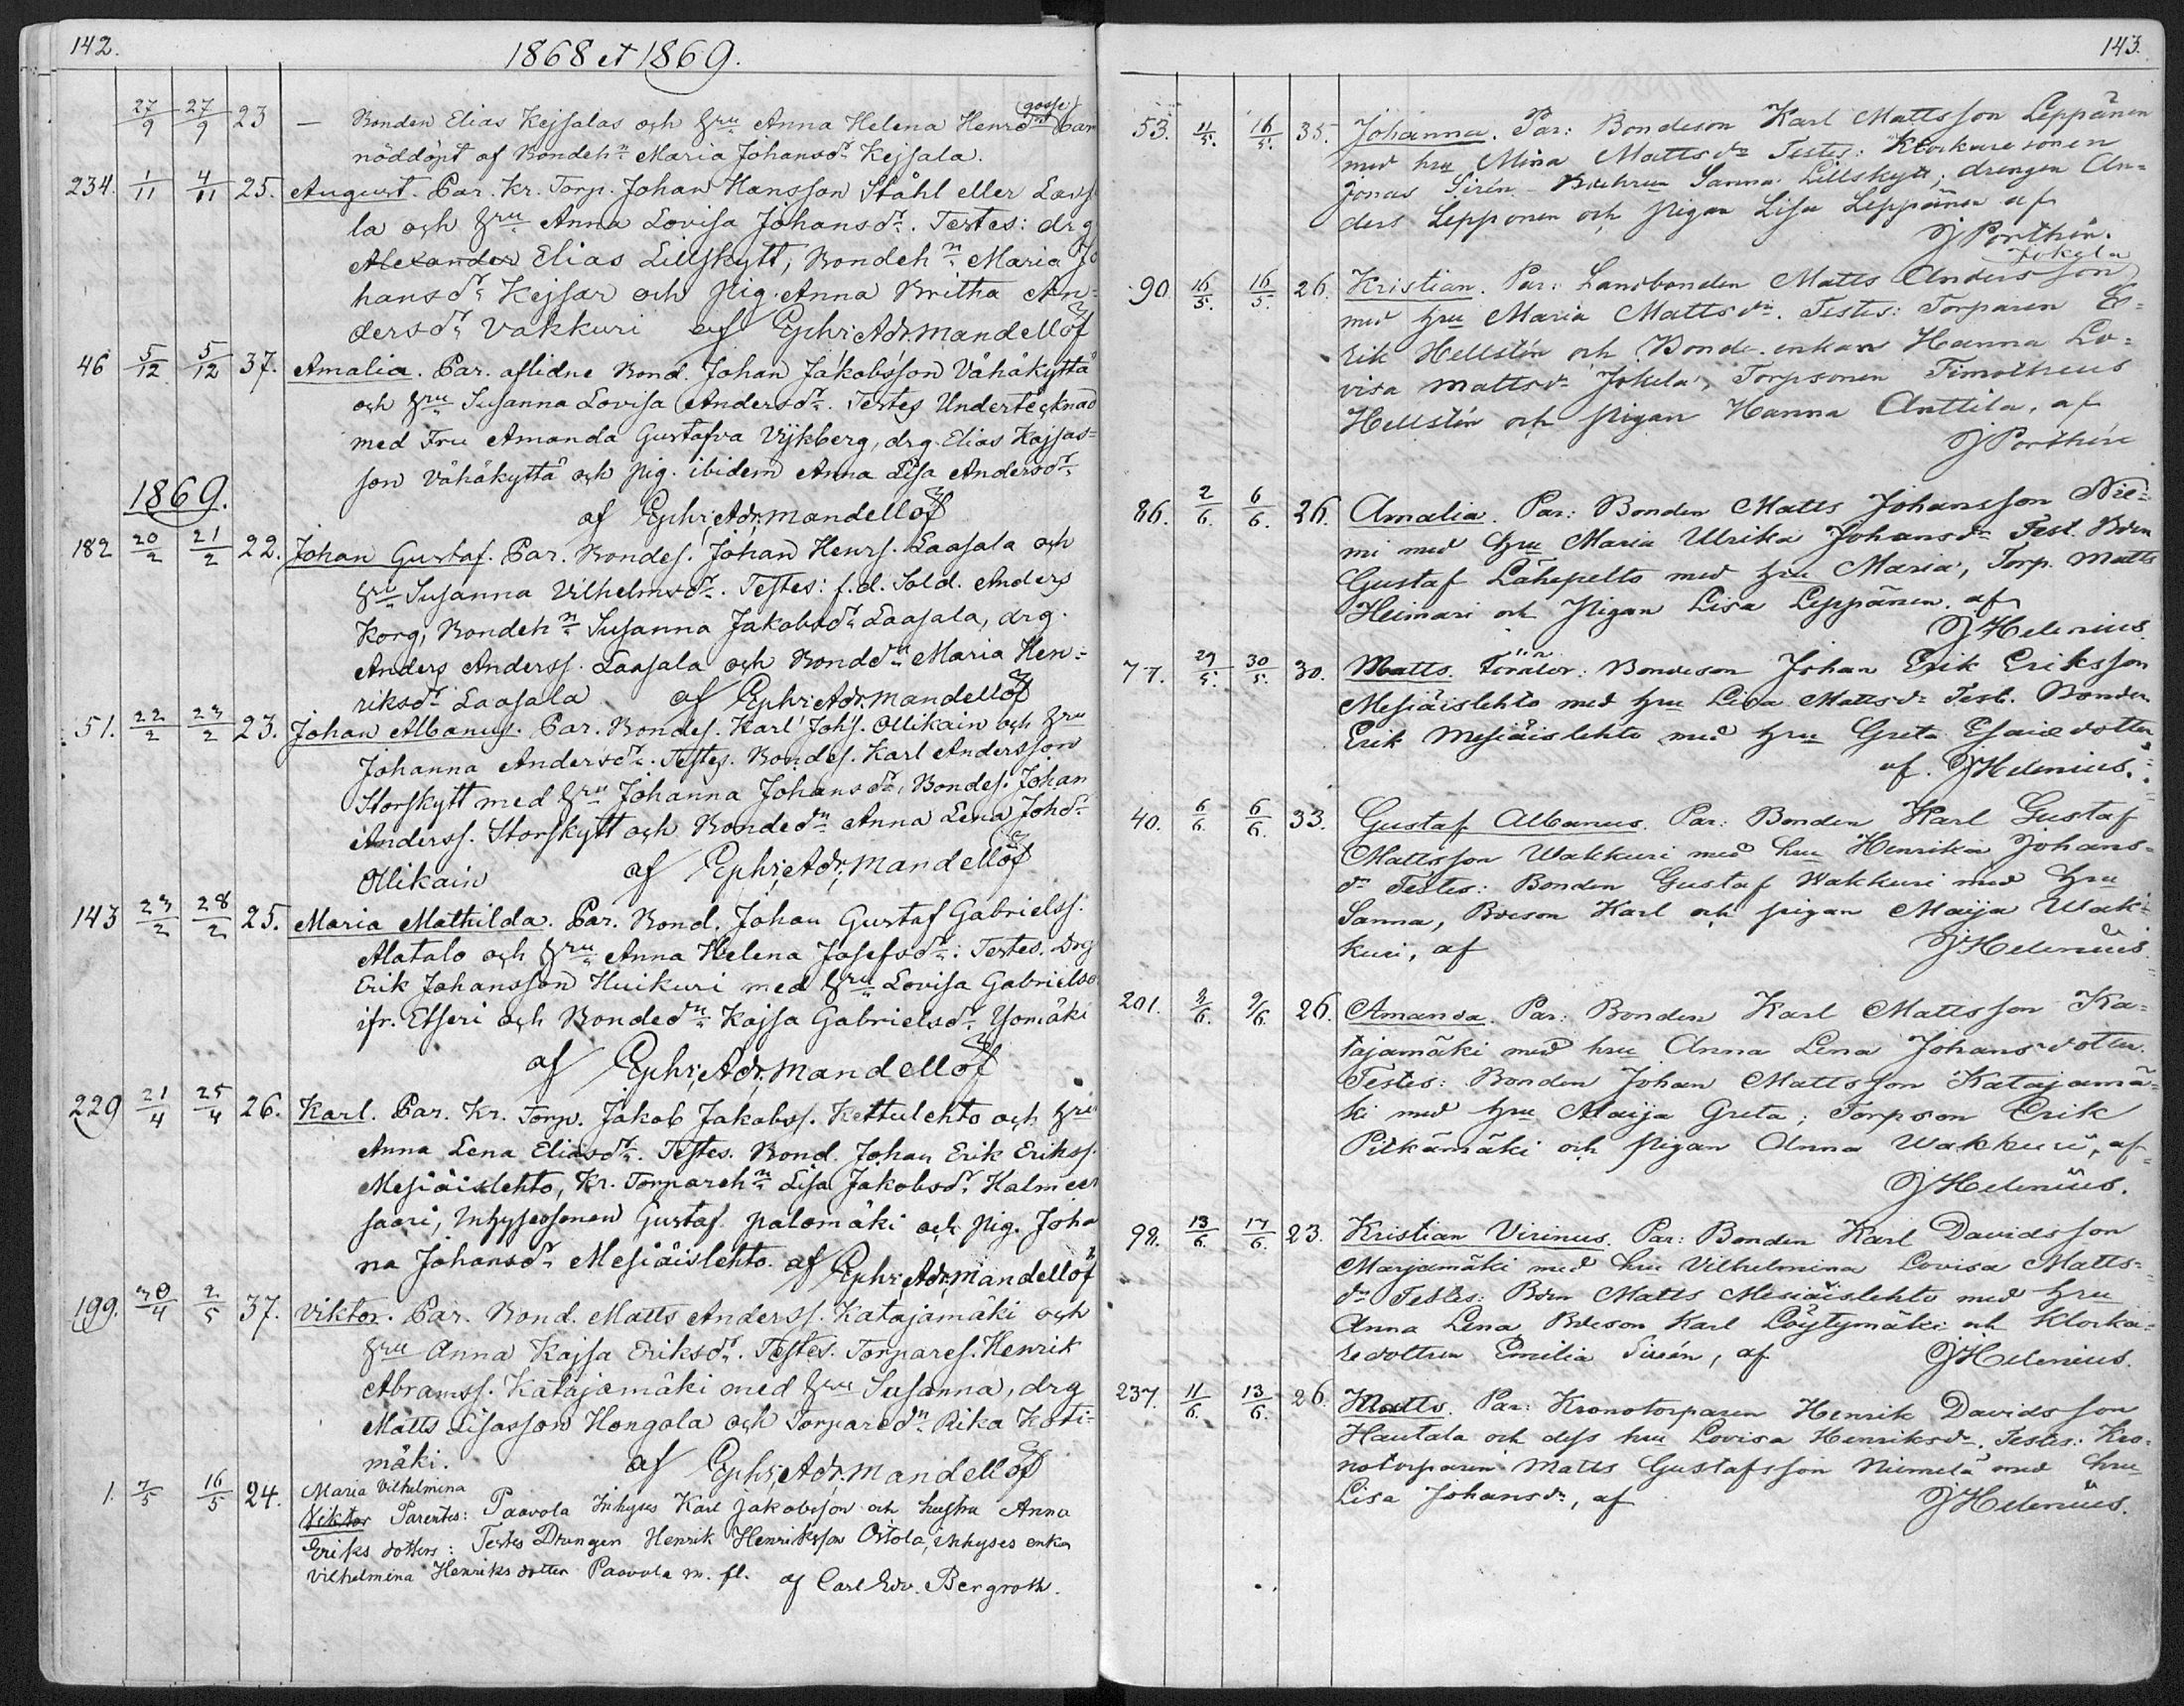 142.
1868 et 1869.
27/9 27/9 23 — Bonden Elias Kejsalas och hru Anna Helena Henrdr (gosse) bar
nöddöpt af Bondehn Maria Johansdr Kejsala.
234. 1/11 4/11 25. August. Par. Kr. Torp. Johan Hansson Ståhl eller Laas
la och hru Anna Lovisa Johansdr. Testes: drg
Alexander Elias Lillskytt, Bondehn Maria Jo
hansdr Kejsar och pig. Anna Britha An-
dersdr Vakkuri af Ephr; Adr; Mandellöf
46 5/12 5/12 37. Amalia. Par. aflidne Bond. Johan Jakobsson Vähäkyttä
och hru Susanna Lovisa Andersdr. Testes Undertecknad
med Fru Amanda Gustafva Vijkberg, drg. Elias Kajsas-
son Vähäkyttä och pig. ibidem Anna Lisa Andersdr
1869.
af Ephr; Adr; Mandellöf
182 20/2 21/2 22. Johan Gustaf. Par. Bondes. Johan Henrs. Laasala och
hru Susanna Vilhelmsdr. Testes: f.d. Sold. Anders
Korg, Bondehn Susanna Jakobsdr Laasala, drg.
Anders Anderss. Laasala och Bonddn Maria Hen-
riksdr Laasala af Ephr; Adr; Mandellöf
51. 22/2 23/2 23. Johan Albanus. Par. Bondes. Karl Johs. Ollikain och hru
Johanna Andersdr. Testes. Bondes. Karl Andersson
Storskytt med hru Johanna Johansdr, Bondes. Johan
Anderss. Storskytt och Bondedn Anna Lena Johdr
Ollikain af Ephr; Adr; Mandellöf
143 23/2 28/2 25. Maria Mathilda. Par. Bond. Johan Gustaf Gabrielss.
Alatalo och hru Anna Helena Josefsdr: Testes. Drg
Erik Johansson Huikuri med hru Lovisa Gabrielsd
ifr. Etseri och Bondedn Kajsa Gabrielsdr Yomäki
af Ephr; Adr. Mandellöf
229 21/4 25/4 26. Karl. Par. Kr. Torp. Jakob Jakobss. Kettulehto och hru
Anna Lena Eliasdr. Testes. Bond. Johan Erik Erikss.
Mesiäislehto, Kr. Torparehn Lisa Jakobsdr Halmee
saari, Inhysessonen Gustaf palomäki och pig. Joha
na Johansdr Mesiäislehto. af Ephr; Adr; Mandellöf
199. 30/4 2/5 37. Viktor. Par. Bond. Matts Anderss. Katajamäki och
hru Anna Kajsa Eriksdr. Testes. Torpares. Henrik
Abramss. Katajamäki med hru Susanna, drg
Matts Lisasson Hongola och Torparedn Rika Koti-
mäki. af Ephr; Adr; Mandellöf
1. 7/5 16/5 24. Maria Vilhelmina
Viktor Parentes: Paavola Inhyses Karl Jakobsson och hustru Anna
Eriks dotters: Testes Drängen Henrik Henriksson Ostola, inhyses enka
Vilhelmina Henriks dotter Paavola m. fl. af Carl Edv. Bergroth.
143.
53. 11/5. 16/5. 35. Johanna. Par: Bondeson Karl Mattsson Leppänen
med hru Mina Mattsdr Testes: Klockaresonen
Jonas Sirén Sanna Lillskytt; drengen An-
ders Lepponen och pigan Lisa Leppänen af
J Porthén.
Jokela
90 16/5. 16/5. 26. Kristian. Par: Landbonden Matts Andersson
med hru Maria Mattsdr. Testes: Torparen E-
rik Hellstén och Bonde enkan Hanna Lo-
visa Mattsdr Jokela, Torpsonen Timotheus
Hellstén och pigan Hanna Anttila, af
J Porthén
86. 2/6. 6/6. 26. Amalia. Par: Bonden Matts Johansson Nie-
mi med hru Maria Ulrika Johansdr Test. Bden
Gustaf Lähepelto med hru Maria, Torp. Matts
Heinari och Pigan Lisa Leppänen. af
J Helenius.
77. 29/5. 30/5. 30. Matts. Föräldr: Bondeson Johan Erik Eriksson
Mesiäislehto med hru Lisa Mattsdr Test. Bonden
Erik Mesiäislehto med hru Greta Esaiædotter
af. J Helenius.
40. 6/6. 6/6. 33. Gustaf Albanus. Par: Bonden Karl Gustaf
Mattsson Wakkuri med hru Henrika Johans-
dr Testes: Bonden Gustaf Wakkuri med hru
Sanna, Bdeson Karl och pigan Maija Wak-
kuri, af J Helenius
201. 9/6. 9/6. 26. Amanda. Par: Bonden Karl Mattsson Ka-
tajamäki med hru Anna Lena Johans dotter.
Testes: Bonden Johan Mattsson Katajamä-
ki med hru Maija Greta; Torpson Erik
Pitkämäki och pigan Anna Wakkuri, af
J Helenius.
98. 13/6. 17/6. 23. Kristian Virinus. Par: Bonden Karl Davidsson
Marjamäki med hru Vilhelmina Lovisa Matts-
dr Testes: Bden Matts Mesiäislehto med hru
Anna Lena Bdeson Karl Löytymäki och Klocka-
redottren Emilia Sirén, af J Helenius.
237. 11/6. 13/6. 26. Matts. Par: Kronotorparen Henrik Davidsson
Hautala och dess hru Lovisa Henriksdr. Testes: Kro-
notorparen Matts Gustafsson Niemelä med hru
Lisa Johansdr, af J Helenius.